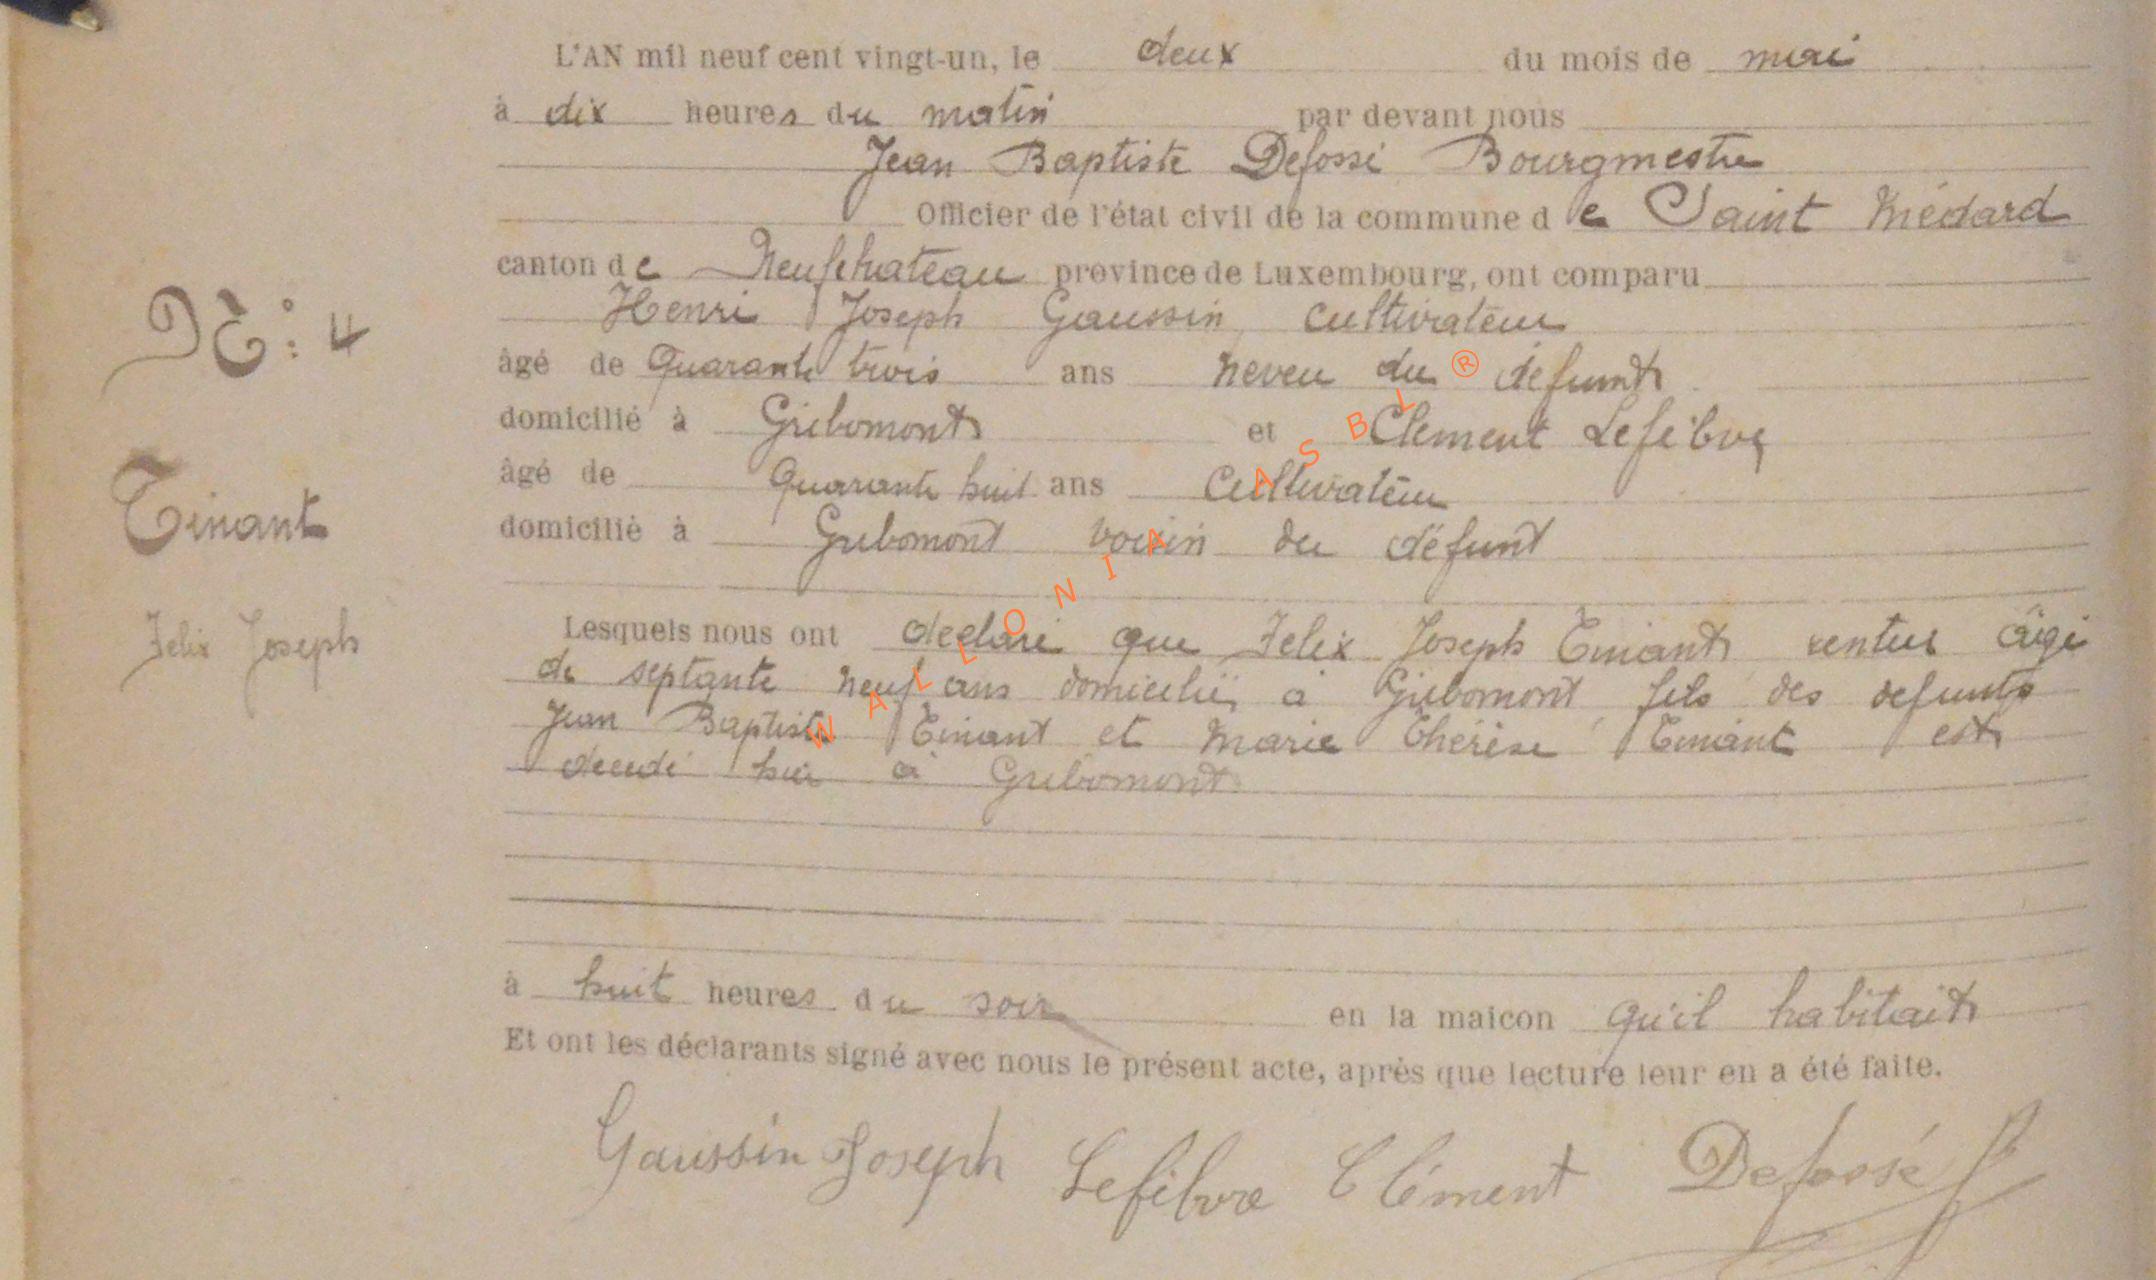 L'AN mil neuf cent vingt-un, le deux du mois de mai
à dix heures du matin par devant nous
Jean Baptiste Defossé Bourgmestre
Officier de l'état civil de la commune de Saint Médard
canton de Neufchateau province de Luxembourg, ont comparu
Henri Joseph Gaussin, cultivateur
N°: 4
âgé de Quarante trois ans neveu du défunt
domicilié à Gribomont et Clement Lefèbvre
âgé de Quarante huit ans Cultivateur
Tinant
domicilié à Gribomont voisin du défunt
Felix Joseph
Lesquels nous ont déclaré que Felix Joseph Tinant rentier âgé
de septante neuf ans domicilié à Gribomont, fils des défunts
Jean Baptiste Tinant et Marie Thérèse Tinant est
décédé hier à Gribomont
à huit heures du soir en la maison qu'il habitait
Et ont les déclarants signé avec nous le présent acte, après que lecture leur en a été faite.
Gaussin Joseph Lefèbvre Clément Defossé
WALLONIA ASBL ®